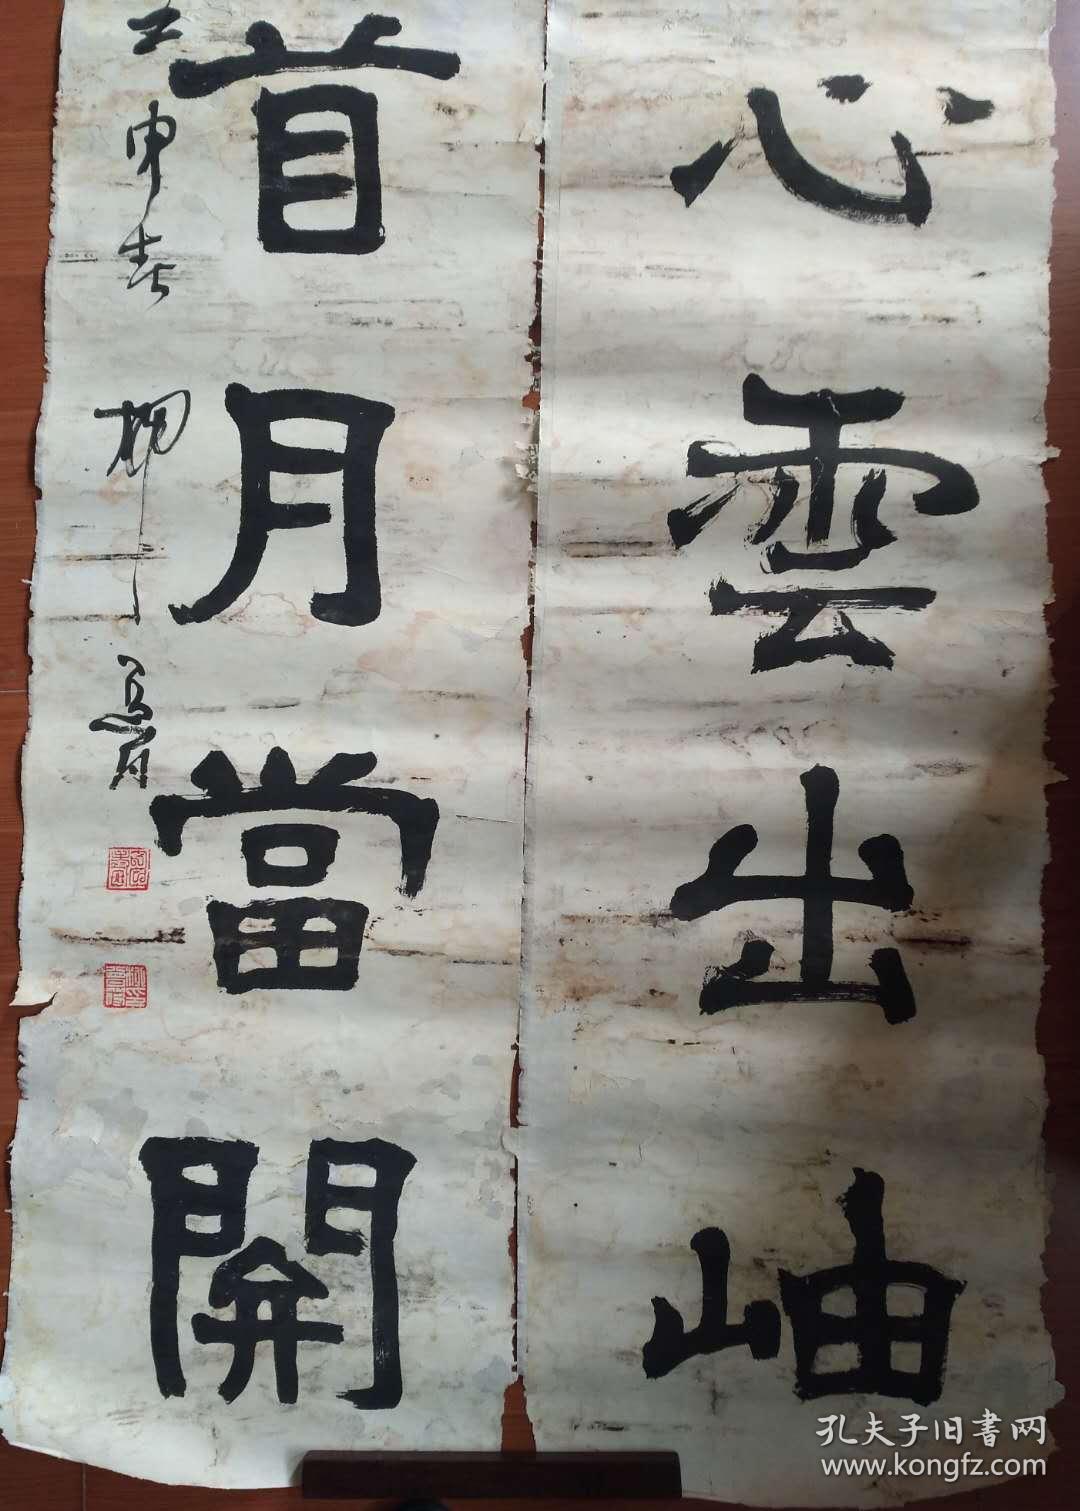 心雲出岫
首月當開
壬申春
孔夫子旧书网
www.kongfz.com